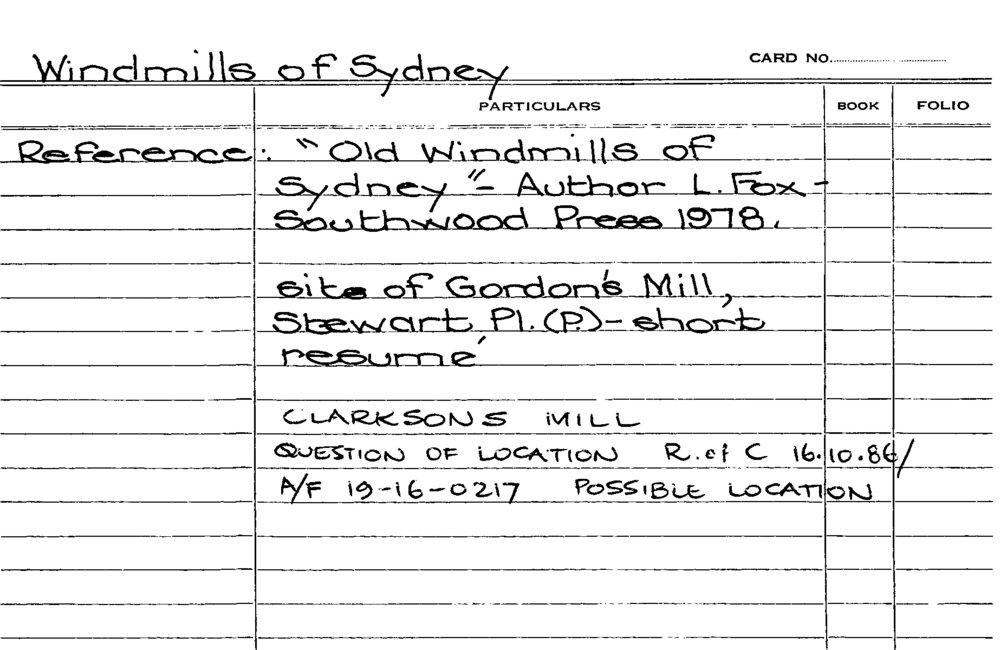 Windmills of Sydney CARD NO.
PARTICULARS BOOK FOLIO
Reference: "Old Windmills of
Sydney" - Author L. Fox -
Southwood Press 1978.
site of Gordon's Mill,
Stewart Pl. (P.) - short
resumé
CLARKSONS MILL
QUESTION OF LOCATION R. of C 16.10.86/
A/F 19-16-0217 POSSIBLE LOCATION